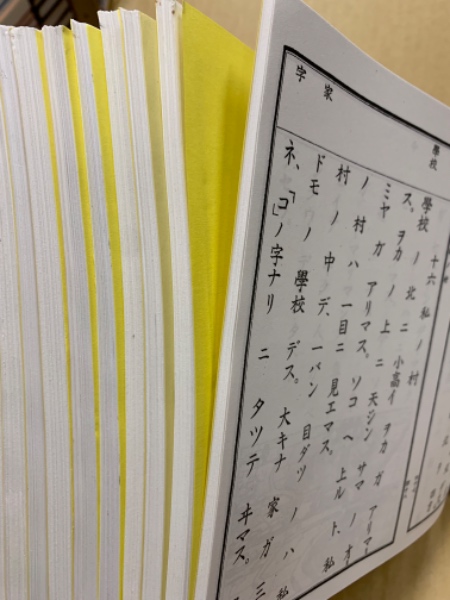 學校
家
字
十六 私ノ村
學校ノ北ニ 小高イ ヲカガ アリマ
ス。ヲカノ上ニ 天ジンサマノ オ
ミヤガ アリマス。ソコヘ 上ルト、私
ノ村ハ 一目ニ 見エマス。
村ノ中デ、一バン 目ダツノハ 私
ドモノ 學校デス。大キナ 家ガ 三
ネ、「コ」ノ字ナリニ タツテ ヰマス。